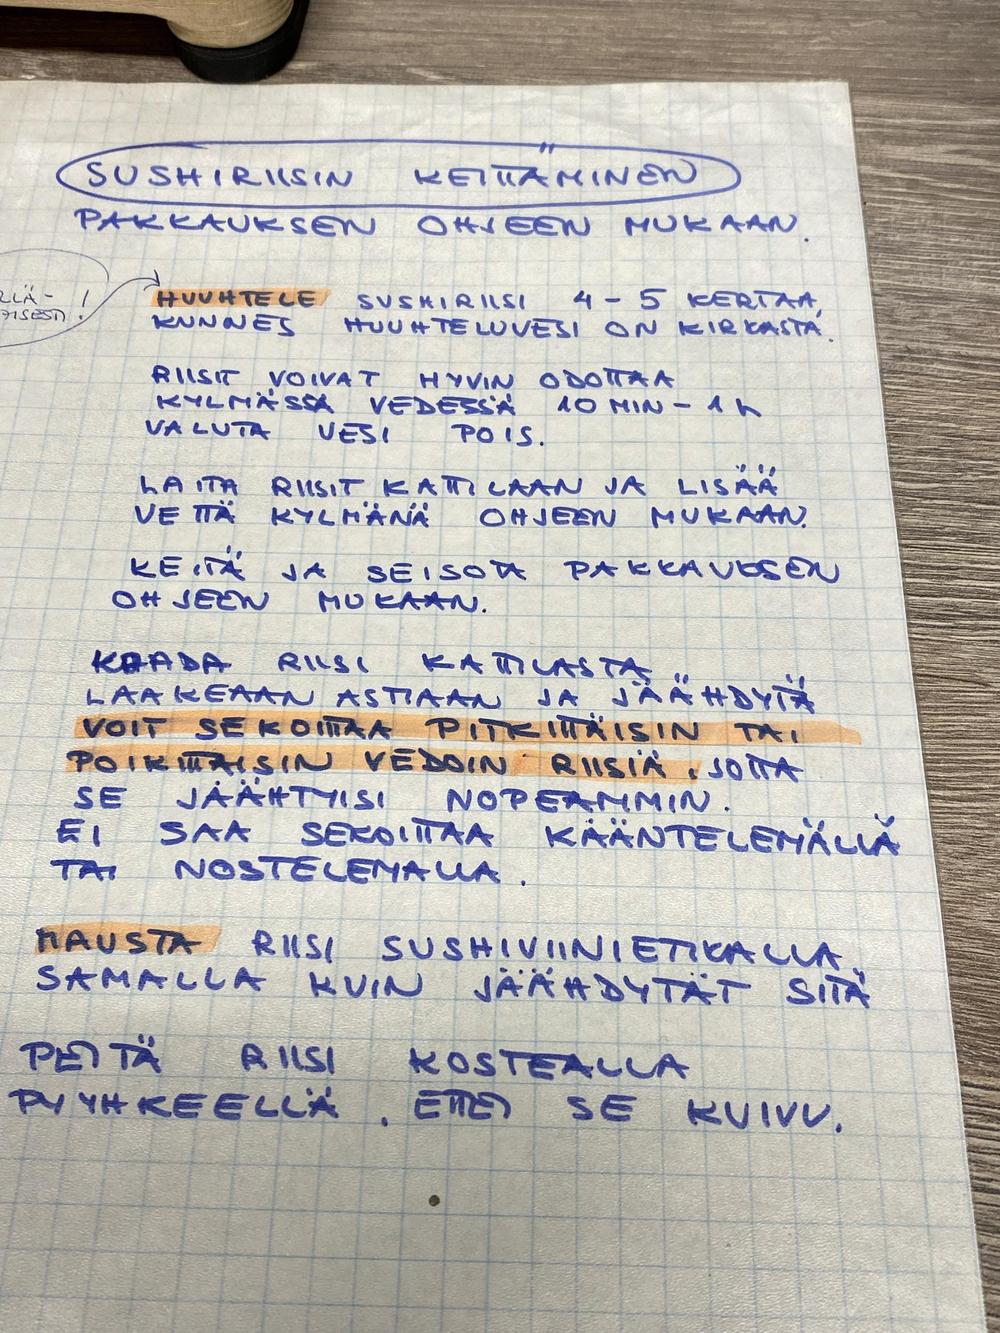 SUSHIRIISIN KEITTÄMINEN
PAKKAUKSEN OHJEEN MUKAAN.
HUUHTELE SUSHIRIISI 4-5 KERTAA,
KUNNES HUUHTELUVESI ON KIRKASTA.
RIISIT VOIVAT HYVIN ODOTTAA
KYLMÄSSÄ VEDESSÄ 10 MIN - 1 h
VALUTA VESI POIS.
LAITA RIISIT KATTILAAN JA LISÄÄ
VETTÄ KYLMÄNÄ OHJEEN MUKAAN.
KEITÄ JA SEISOTA PAKKAUKSEN
OHJEEN MUKAAN.
KAADA RIISI KATTILASTA
LAAKEAAN ASTIAAN JA JÄÄHDYTÄ
VOIT SEKOITTAA PITKITTÄISIN TAI
POIKITTAISIN VEDOIN RIISIÄ, JOTTA
SE JÄÄHTYISI NOPEAMMIN.
EI SAA SEKOITTAA KÄÄNTELEMÄLLÄ
TAI NOSTELEMALLA.
MAUSTA RIISI SUSHIVIINIETIKALLA
SAMALLA KUIN JÄÄHDYTÄT SITÄ
PEITÄ RIISI KOSTEALLA
PYYHKEELLÄ, ETTEI SE KUIVU.